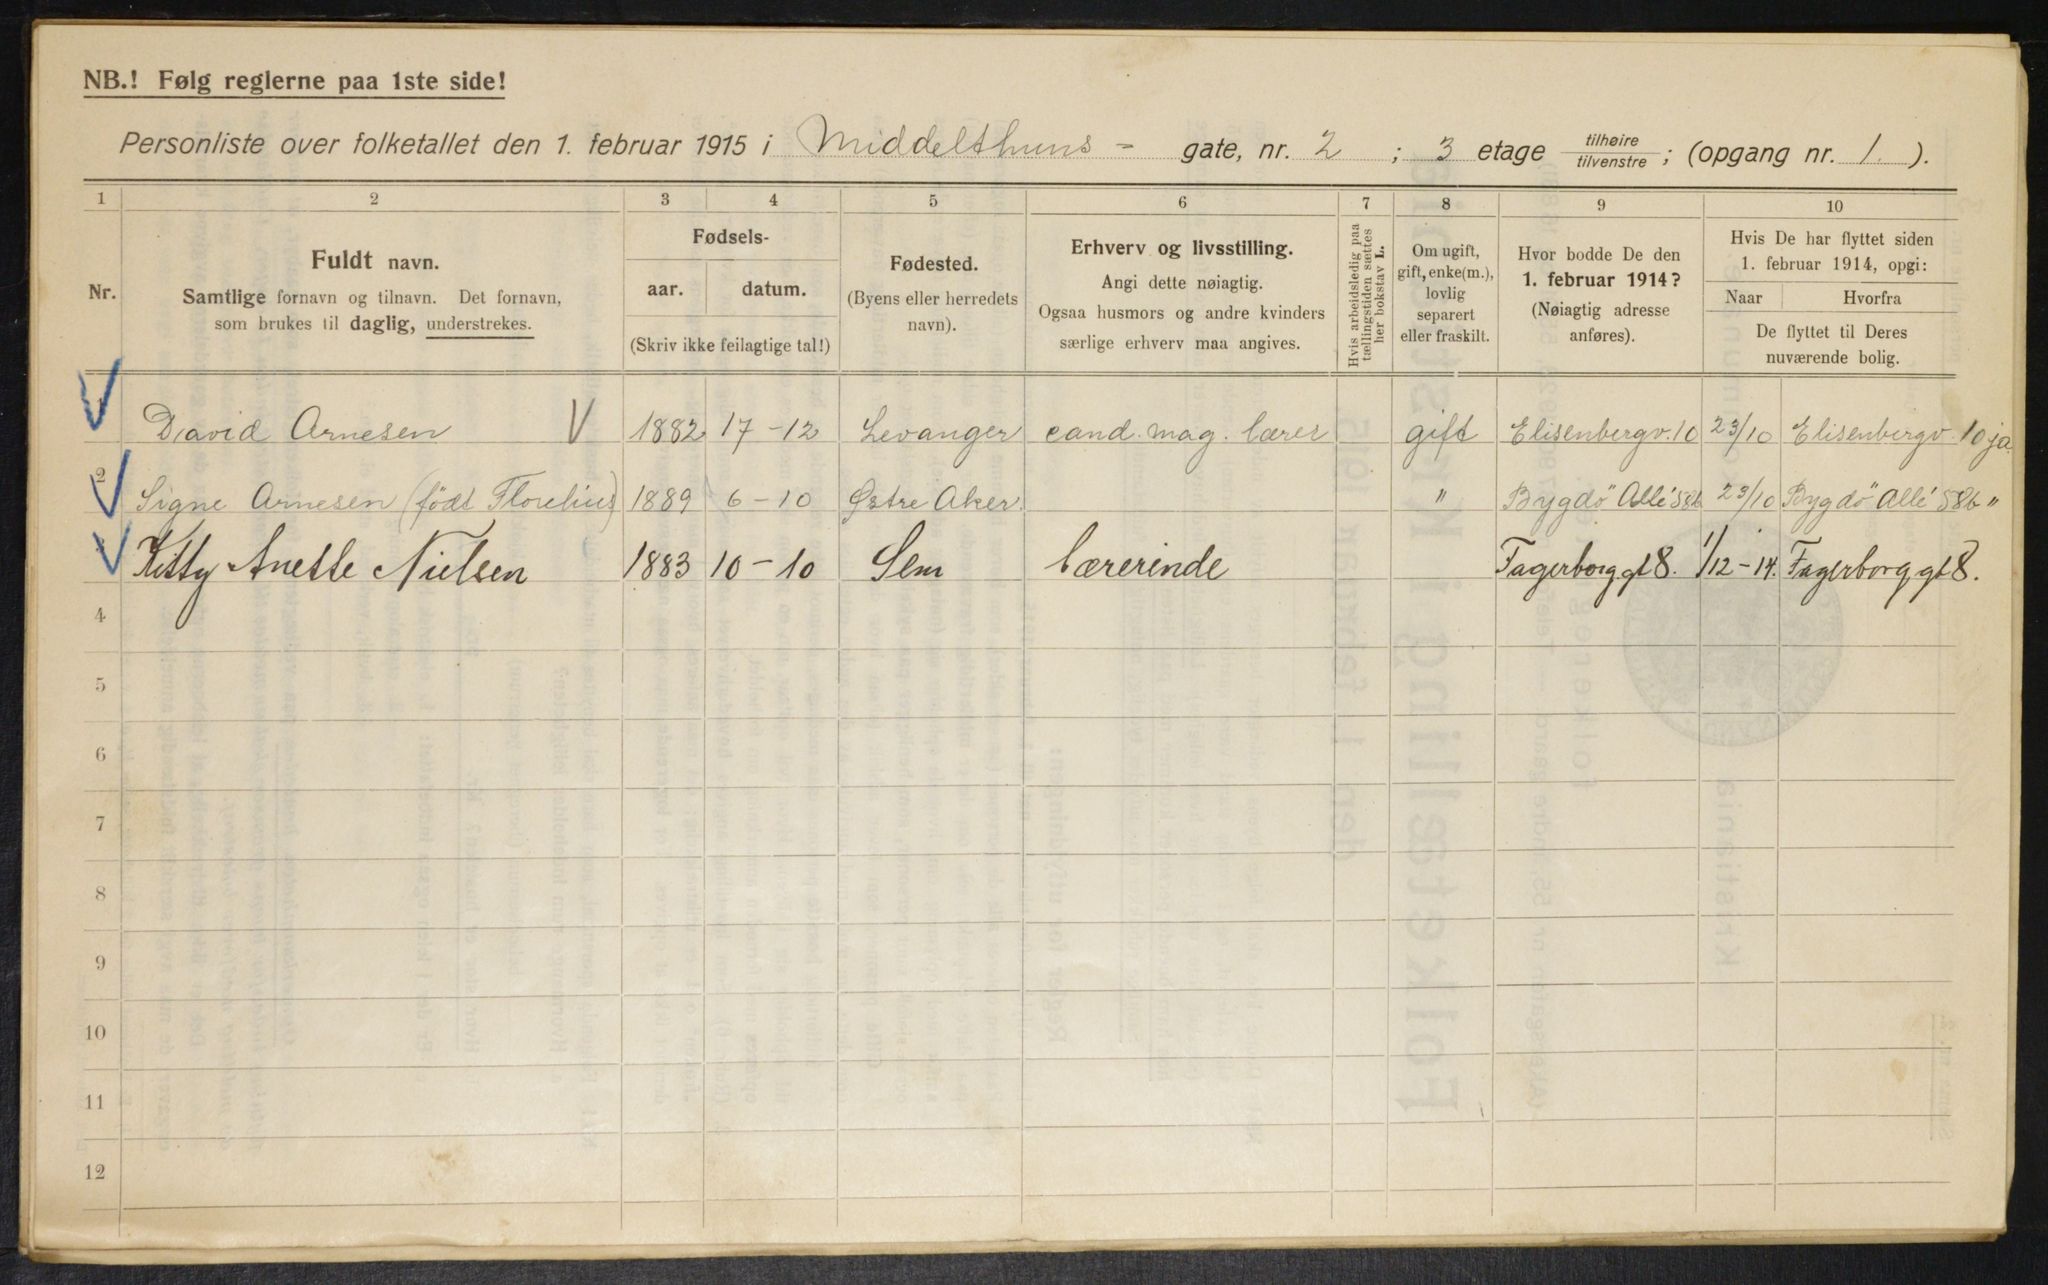 NB.! Følg reglerne paa 1ste side!
Personliste over folketallet den 1. februar 1915 i Middelthuns - gate, nr. 2 ; 3 etage tilhøire tilvenstre ; (opgang nr. 1. ).
1 2 3 4 5 6 7 8 9 10
Nr.
Fuldt navn.
Samtlige fornavn og tilnavn. Det fornavn,
som brukes til daglig, understrekes.
Fødsels-
aar. datum.
(Skriv ikke feilagtige tal!)
Fødested.
(Byens eller herredets
navn).
Erhverv og livsstilling.
Angi dette nøiagtig.
Ogsaa husmors og andre kvinders
særlige erhverv maa angives.
Hvis arbeidsledig paa
tællingstiden sættes
her bokstav L.
Om ugift,
gift, enke(m.),
lovlig
separert
eller fraskilt.
Hvor bodde De den
1. februar 1914?
(Nøiagtig adresse
anføres).
Hvis De har flyttet siden
1. februar 1914, opgi:
Naar Hvorfra
De flyttet til Deres
nuværende bolig.
David Arnesen 1882 17-12 Levanger cand. mag. lærer gift Elisenbergv. 10 23/10 Elisenbergv. 10 ja.
2 Signe Arnesen (födt Florelius) 1889 6-10 Østre Aker. " Bygdö Allé 58b 23/10 Bygdö Allé 58b "
Kitty Anette Nielsen 1883 10-10 Sem Lærerinde Fagerborg gt 8. 1/12-14. Fagerborg gt 8.
4
5
6
7
8
9
10
11
12